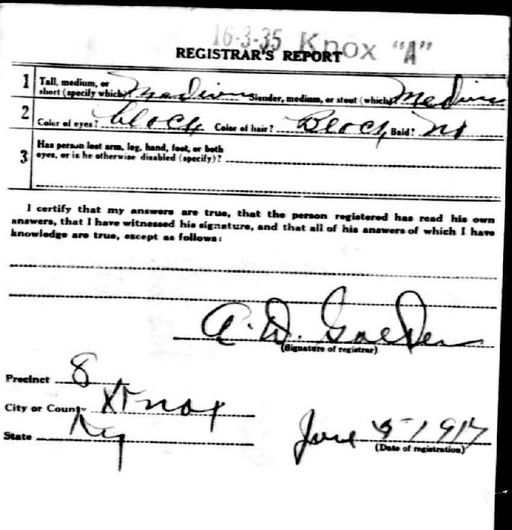 16-3-35 Knox "A"
REGISTRAR'S REPORT
1 Tall, medium, or short (specify which)? Medium Slender, medium, or stout (which)? Medium
2 Color of eyes? black Color of hair? Black Bald? no
3 Has person lost arm, leg, hand, foot, or both
eyes, or is he otherwise disabled (specify)?
I certify that my answers are true, that the person registered has read his own
answers, that I have witnessed his signature, and that all of his answers of which I have
knowledge are true, except as follows:
A. D. Golden
(Signature of registrar)
Precinct 8
City or County Knox
State Ky
June 5-1917
(Date of registration)